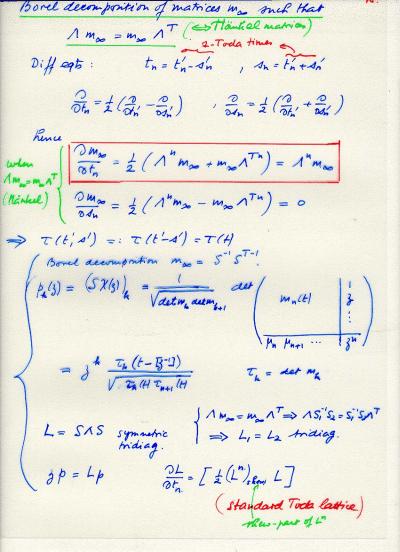 Borel decomposition of matrices m∞ such that
Λ m∞ = m∞ Λ^T (⟺ Hänkel matrices)
2-Toda times
Diff eqts: t_n = t'_n - s'_n , s_n = t'_n + s'_n
∂/∂t_n = 1/2 (∂/∂t'_n - ∂/∂s'_n) , ∂/∂s_n = 1/2 (∂/∂t'_n + ∂/∂s'_n)
hence
when Λm∞ = m∞Λ^T (Hänkel)
∂m∞/∂t_n = 1/2 (Λ^n m∞ + m∞ Λ^{Tn}) = Λ^n m∞
∂m∞/∂s_n = 1/2 (Λ^n m∞ - m∞ Λ^{Tn}) = 0
⟹ τ(t', s') =: τ(t'-s') = τ(t)
Borel decomposition m∞ = S^{-1} S^{T-1}
p_k(z) = (S χ(z))_k = 1/√(det m_k det m_{k+1}) det ( m_n(t) | 1 z ⋮ / μ_n μ_{n+1} ⋯ | z^n )
= z^k τ_k(t-[z^{-1}])/√(τ_k(t) τ_{n+1}(t)) τ_k = det m_k
L = SΛS symmetric tridiag. { Λm∞ = m∞Λ^T ⟹ ΛS_1^{-1}S_2 = S_1^{-1}S_2Λ^T
⟹ L_1 = L_2 tridiag.
zp = Lp ∂L/∂t_n = [1/2 (L^n)_{skew}, L]
(standard Toda lattice)
skew-part of L^n